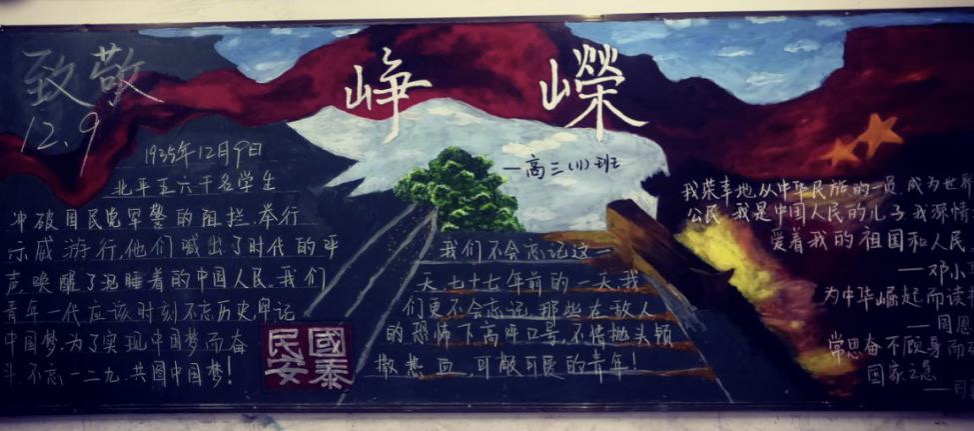 致敬
12.9
峥嵘
一高三(11)班
1935年12月9日
北平五六千名学生
冲破国民党军警的阻拦,举行
示威游行,他们喊出了时代的呼
声唤醒了沉睡着的中国人民。我们
青年一代应该时刻不忘历史牢记
中国梦,为了实现中国梦而奋
斗.不忘一二九,共圆中国梦!
國泰
民安
我们不会忘记这一
天七十七年前的一天,我
们更不会忘记那些在敌人
的恐怖下高呼口号,不惜抛头颅
撒热血,可敬可爱的青年!
我荣幸地从中华民族的一员,成为世界
公民.我是中国人民的儿子.我深情
爱着我的祖国和人民
—邓小
为中华崛起而读
—周恩
常思奋不顾身而
国家之急
—司